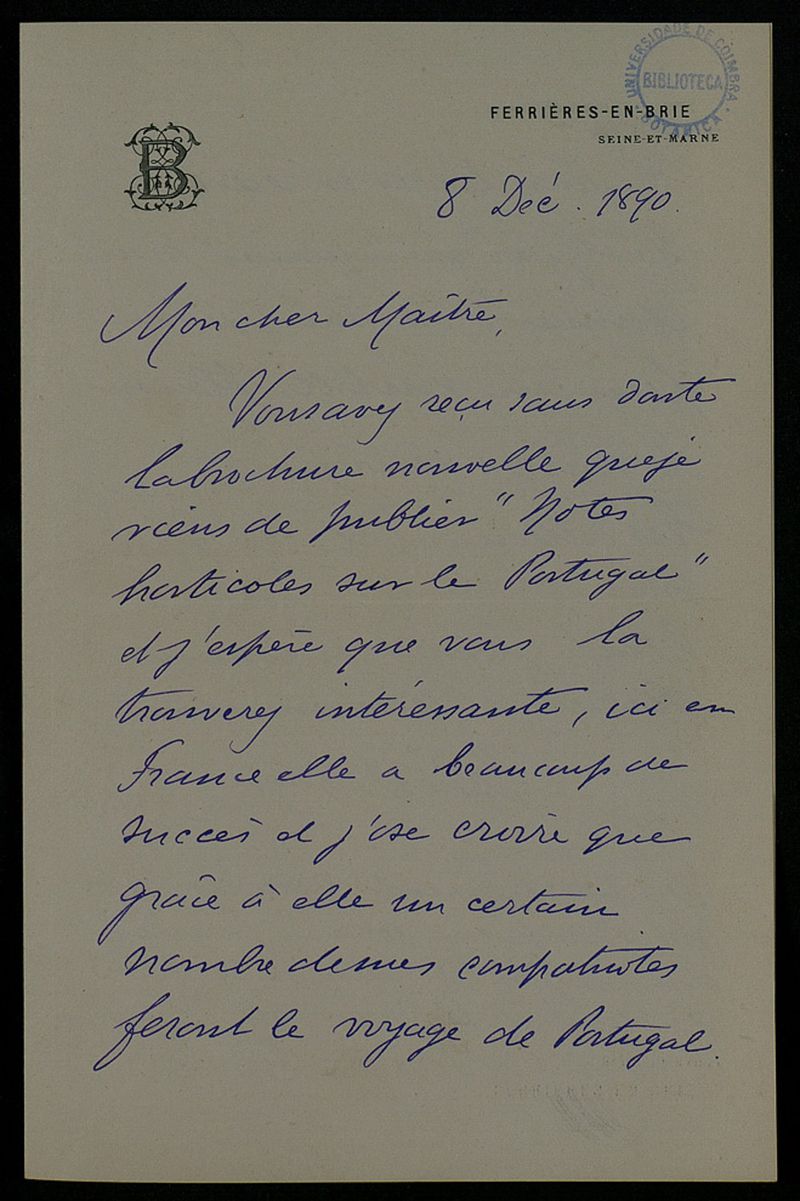 UNIVERSIDADE DE COIMBRA
BIBLIOTECA
BOTANICA
B
FERRIÈRES-EN-BRIE
SEINE-ET-MARNE
8 Déc. 1890.
Mon cher Maître,
Vous avez reçu sans doute
la brochure nouvelle que je
viens de publier "Notes
horticoles sur le Portugal"
et j'espère que vous la
trouverez intéressante, ici en
France elle a beaucoup de
succès et j'ose croire que
grâce à elle un certain
nombre de mes compatriotes
feront le voyage de Portugal.